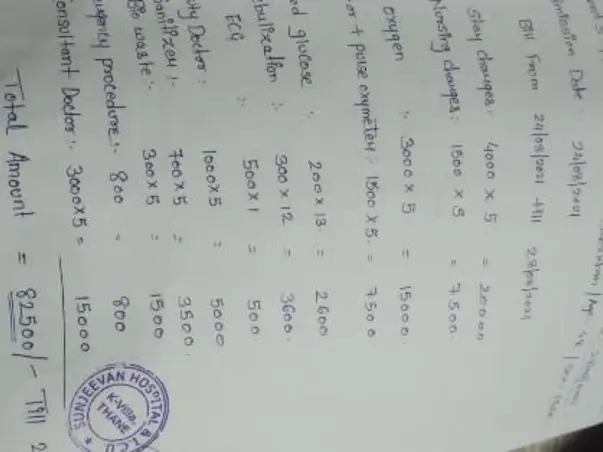 Admission Date : 24/08/2021
Bill From 24/08/2021 till 28/08/2021
Stay charges : 4000 x 5 = 20000
Nursing charges : 1500 x 5 = 7,500.
oxygen : 3000 x 5 = 15000.
or + pulse oxymeter : 1500 x 5. = 7500
ed glucose : 200 x 13 = 2600
bulisation : 300 x 12 = 3600.
ECG : 500 x 1 = 500.
ty Doctor : 1000 x 5 = 5000
anitizer : 700 x 5 = 3500.
Bio waste : 300 x 5 = 1500
rgency procedure : 800 = 800
onsultant Doctor : 3000 x 5 = 15000
Total Amount = 82500/- Till 2
SUNJEEVAN HOSPITAL &
K-Villa,
THANE